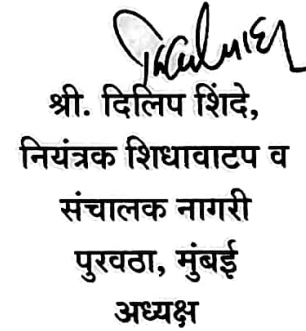 श्री. दिलिप शिंदे,
नियंत्रक शिधावाटप व
संचालक नागरी
पुरवठा, मुंबई
अध्यक्ष